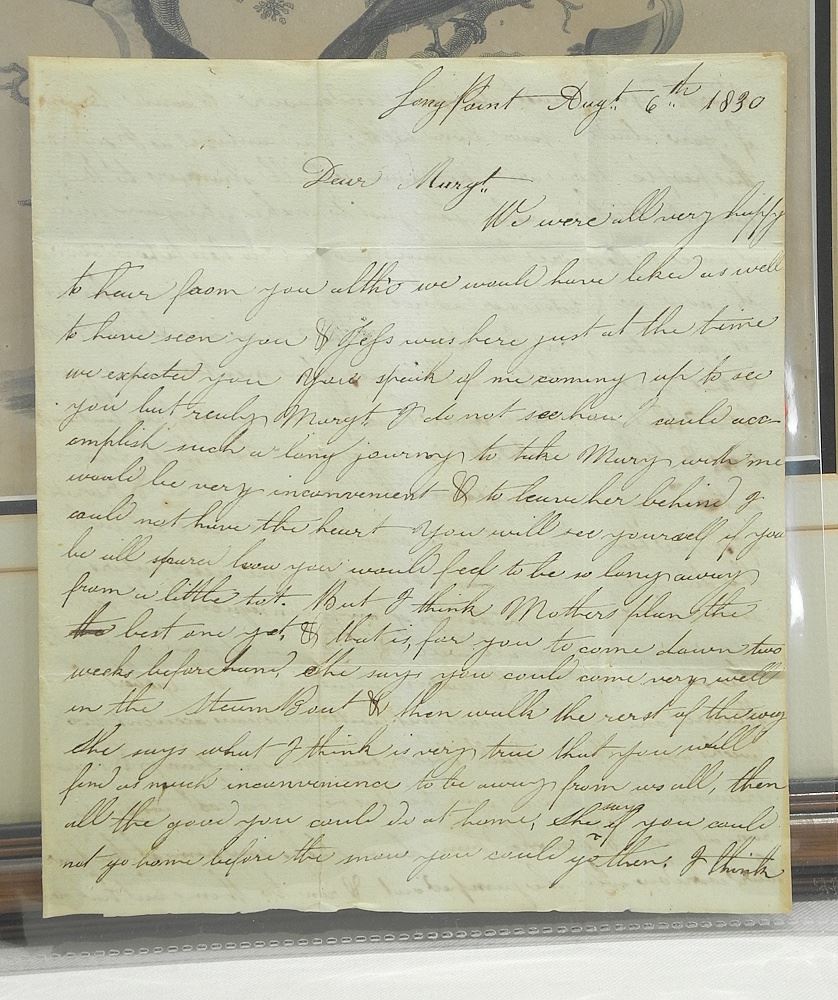 Long Point Augt. 6th 1830
Dear Margt.
We were all very happy
to hear from you altho we would have liked as well
to have seen you & Jess was here just at the time
we expected you You speak of me coming up to see
you but realy Margt. I do not see how I could acc-
omplish such a long journey to take Mary with me
would be very inconvenient & to leave her behind I
could not have the heart You will see yourself if you
be all spared how you would feel to be so long away
from a little tot. But I think Mothers plan the
the best one yet, & that is, for you to come down two
weeks before hand, She says you could come very well
in the Steam Boat & then walk the rest of the way
She says what I think is very true that you will
find as much inconvenience to be away from us all, then
all the good you could do at home, She says if you could
not go home before the snow you could go then. I think